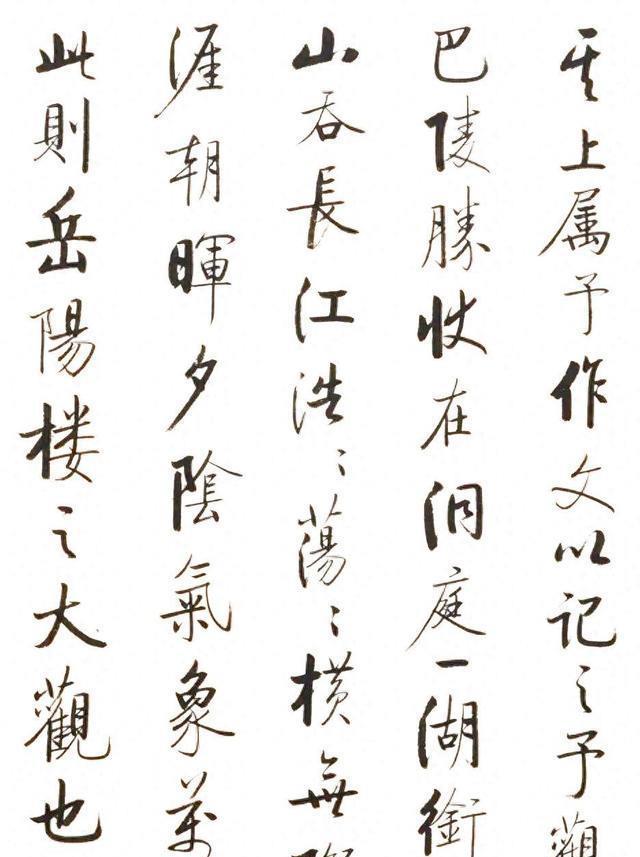 其上属予作文以记之予觀
巴陵勝状在洞庭一湖銜
山吞長江浩〻蕩〻橫無際
涯朝暉夕陰氣象萬
此則岳陽楼之大觀也